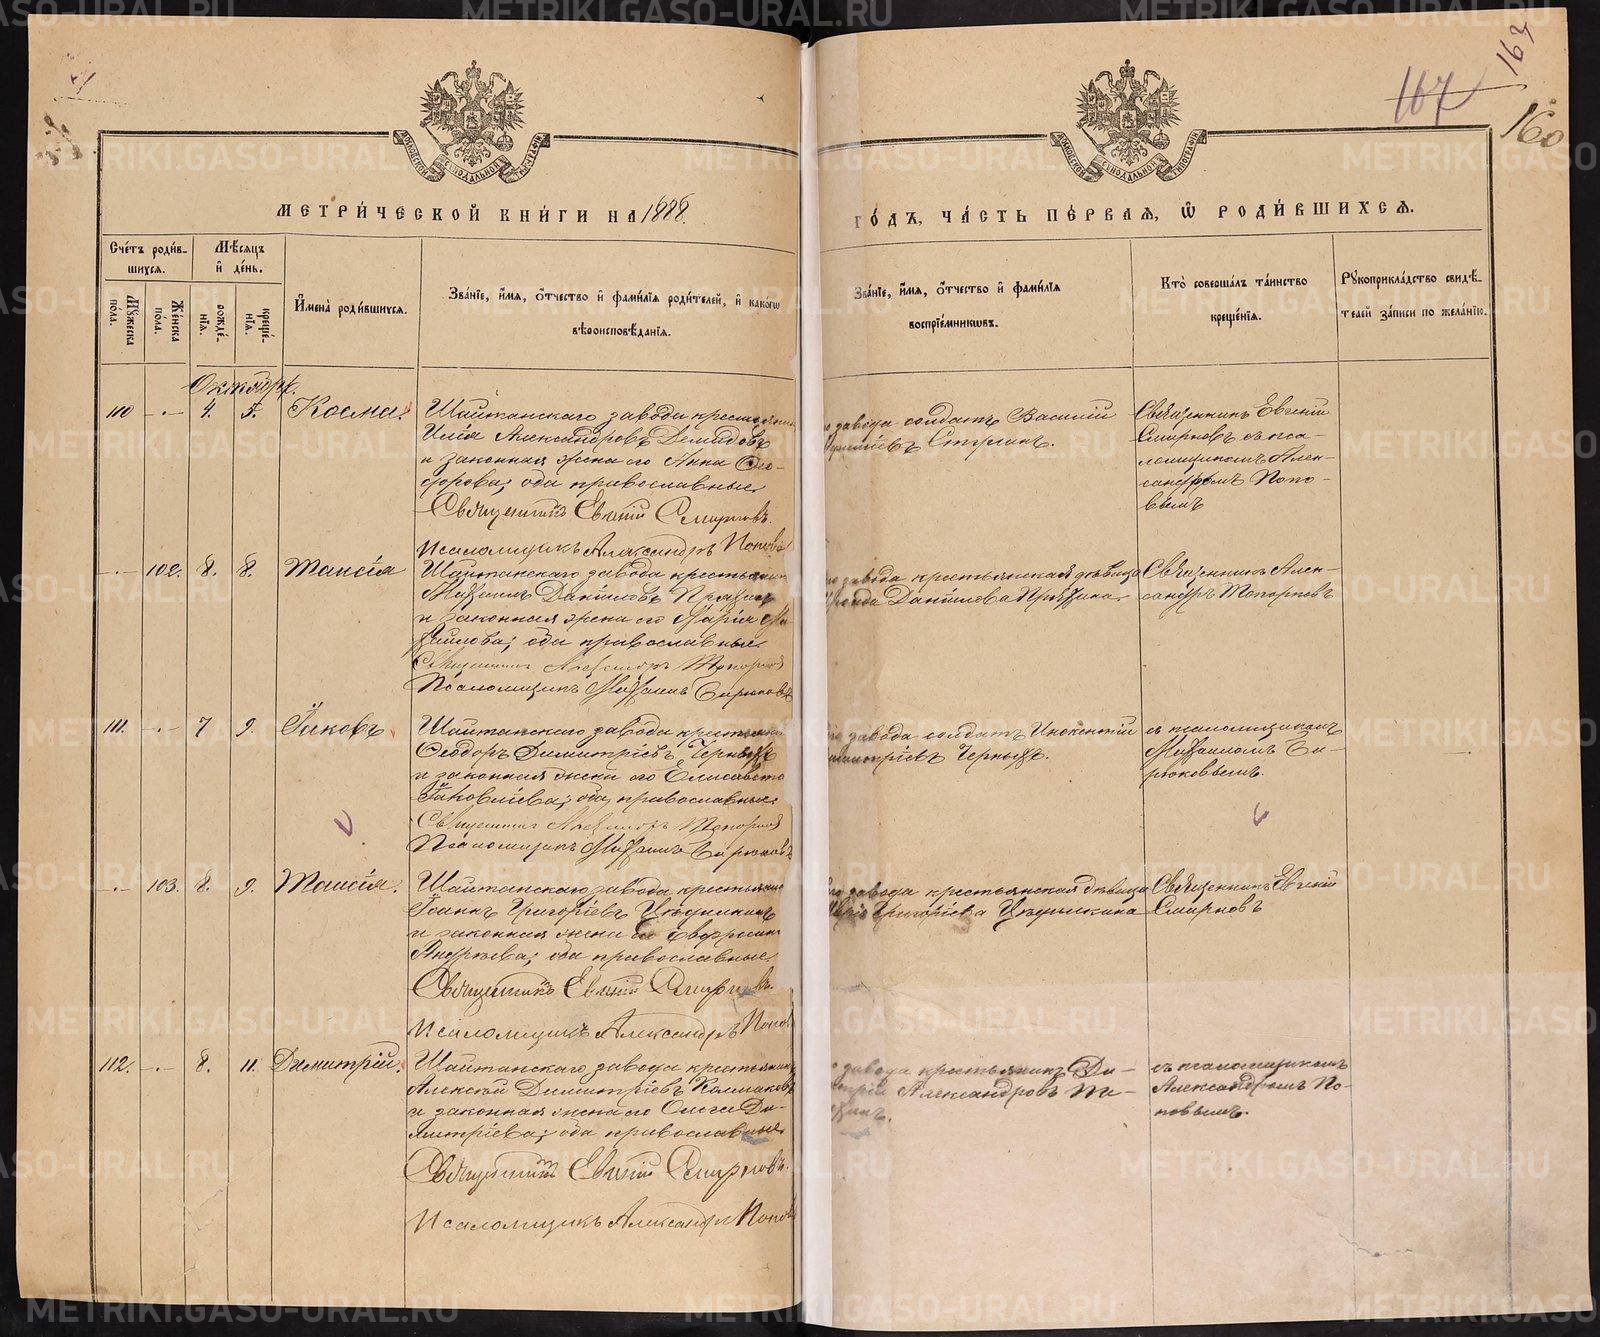 167
163
160
МЕТРИЧЕСКОЙ КНИГИ НА 1888
ГОДЪ, ЧАСТЬ ПЕРВАЯ, Ѡ РОДИВШИХСЯ.
Счетъ родив-
шихся.
Мѣсяцъ
и день.
Мужеска
пола.
Женска
пола.
рожде-
нія.
креще-
нія.
Имена родившихся.
Званіе, имя, отчество и фамилія родителей, и какогѡ
вѣроисповѣданія.
Званіе, имя, отчество и фамилія
воспріемникѡвъ.
Кто совершалъ таинство
крещенія.
Рукоприкладство свидѣ-
телей записи по желанію.
Октябрь.
110 -.- 4. 5. Косма.
Шайтанскаго завода крестьянинъ
Илія Александровъ Демидовъ
и законная жена его Анна Ѳео-
дорова; оба православные.
Священникъ Евгеній Смирновъ.
Псаломщикъ Александръ Поповъ
завода солдатъ Василій
Священникъ Евгеній
Смирновъ съ пса-
ломщикомъ Алек-
сандромъ Попо-
вымъ
-.- 102. 8. 8. Таисія
Шайтанскаго завода крестьянинъ
Михаилъ Даниловъ
и законная жена его Марія Ми-
хайлова; оба православные.
Священникъ Александръ Топорковъ
Псаломщикъ Михаилъ Бирюковъ
завода крестьянская дѣвица
Данилова
Священникъ Алек-
сандръ Топорковъ
111. -.- 7 9. Іаковъ
Шайтанскаго завода
Ѳеодоръ Димитріевъ Черныхъ
и законная жена его Елисавета
Іаковлева; оба православные.
Священникъ Александръ Топорковъ
Псаломщикъ Михаилъ Бирюковъ
завода солдатъ Инокентій
Черныхъ.
съ псаломщикомъ
Михаиломъ Би-
рюковымъ.
-.- 103. 8. 9. Таисія.
Шайтанскаго завода крестьянинъ
Іоаннъ Григоріевъ
и законная жена его
Андреева; оба православные.
Священникъ Евгеній Смирновъ.
Псаломщикъ Александръ Поповъ
завода крестьянская дѣвица
Григоріева
Священникъ Евгеній
Смирновъ
112. -.- 8. 11. Димитрій.
Шайтанскаго завода крестьянинъ
Алексѣй Димитріевъ Колмаковъ
и законная жена его Ольга Ди-
митріева; оба православные.
Священникъ Евгеній Смирновъ.
Псаломщикъ Александръ Поповъ
завода крестьянинъ Ди-
митрій Александровъ
съ псаломщикомъ
Александромъ По-
повымъ.
METRIKI.GASO-URAL.RU